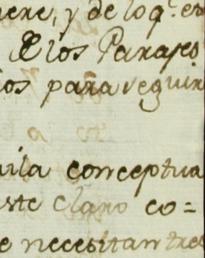 nere, y de loq.e es
de los Parajes
ios para seguir
uila conceptua
este claro co=
e necesitan tres